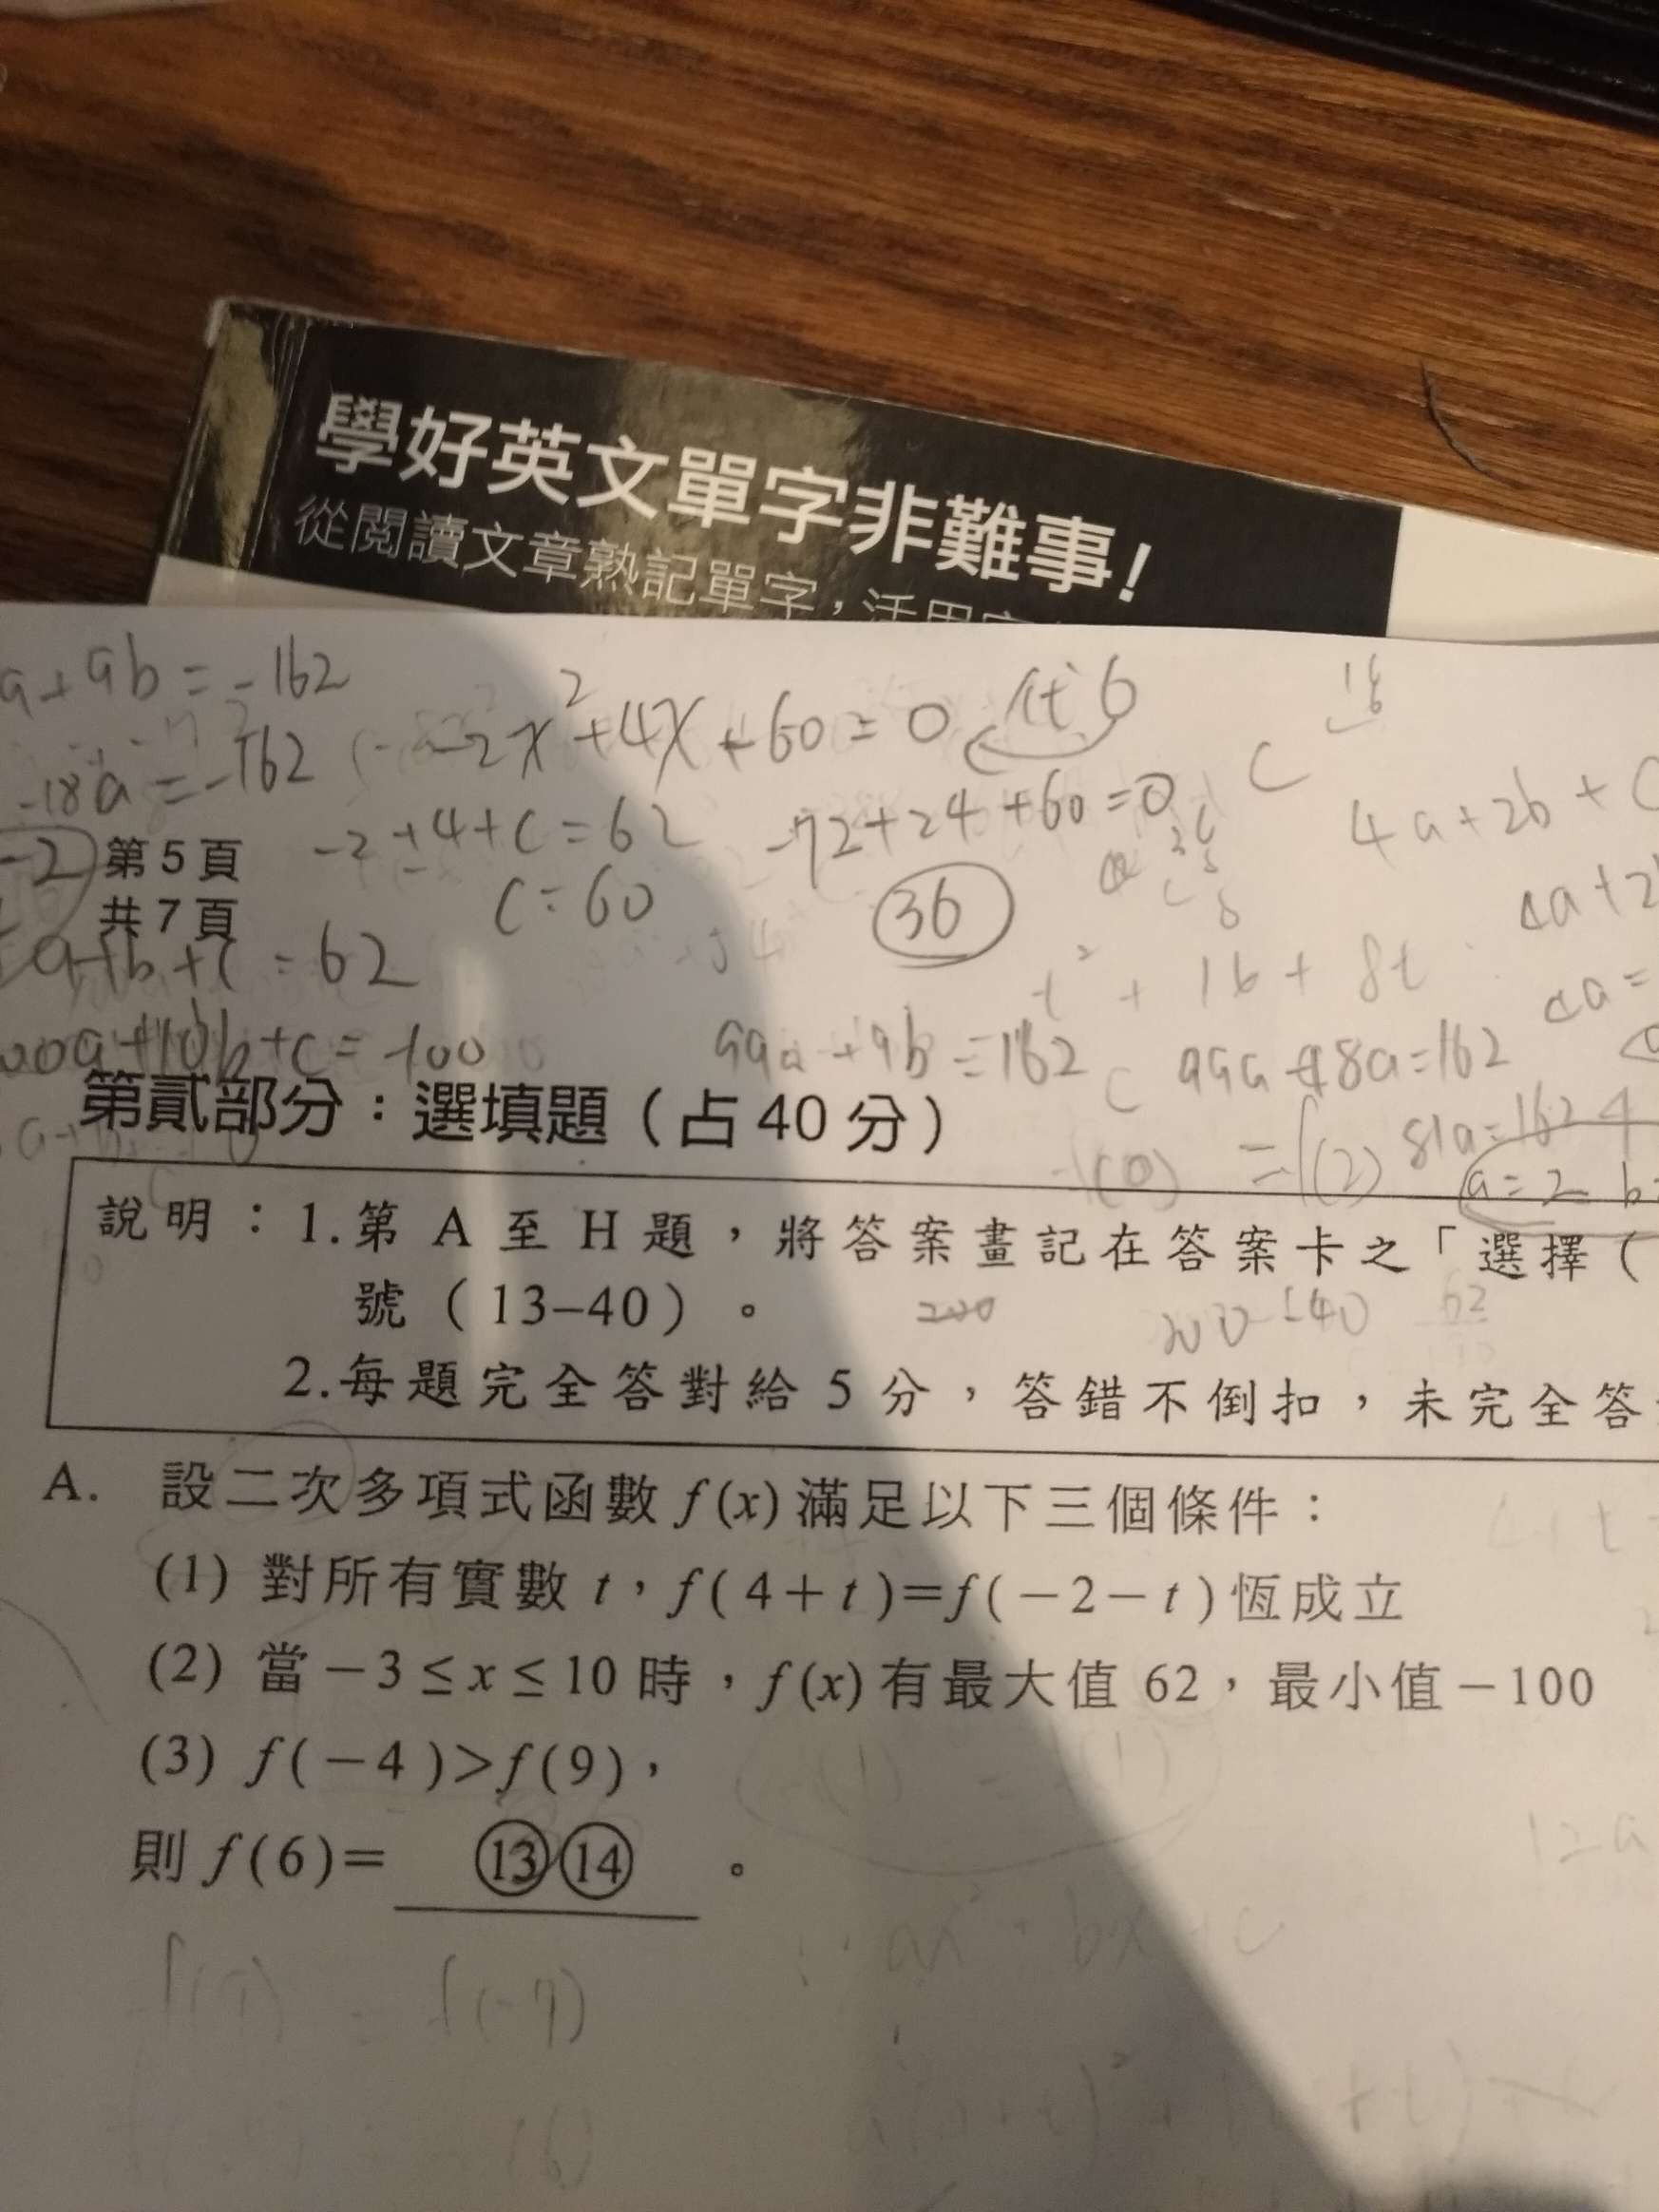 學好英文單字非難事!
從閱讀文章熟記單字，活用
a+9b=-162
-18a=-162
-2x²+4x+60=0 代6
-2+4+c=62
-72+24+60=0
c=60
36
-2
第5頁
共7頁
a+b+c=62
00a+10b+c=-100
99a+9b=162
99a-18a=162
81a=162
a=2
4a+2b+c
t²+16+8t
f(0)=f(2)
第貳部分：選填題（占40分）
說明：1.第 A 至 H 題，將答案畫記在答案卡之「選擇（
號（13–40）。
2.每題完全答對給 5 分，答錯不倒扣，未完全答
A. 設二次多項式函數 f(x) 滿足以下三個條件：
(1) 對所有實數 t，f(4+t)=f(−2−t) 恆成立
(2) 當 −3≤x≤10 時，f(x) 有最大值 62，最小值 −100
(3) f(−4)>f(9)，
則 f(6)= ⑬⑭ 。
ax²+bx+c